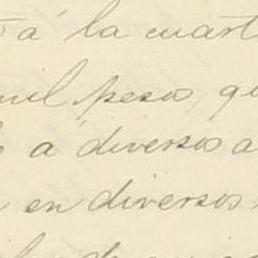 á la cuart
mil pesos, qu
á diversos a
en diversos